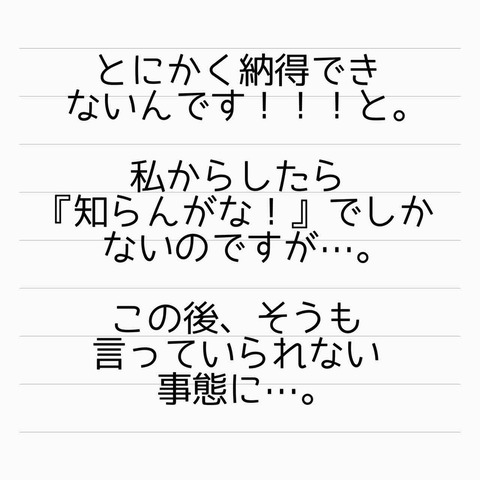 とにかく納得でき
ないんです！！！と。
私からしたら
『知らんがな！』でしか
ないのですが…。
この後、そうも
言っていられない
事態に…。